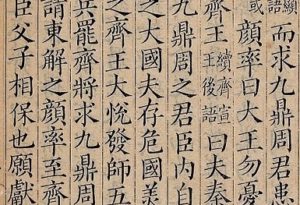 語而求九鼎周
或顏率曰大王勿憂
謂齊王續齊宣王後語曰夫秦
九鼎周之君臣內自
之大國夫存危國美
之齊王大悅發師五
兵罷齊將求九鼎周
請東解之顏率至齊
臣父子相保也願獻